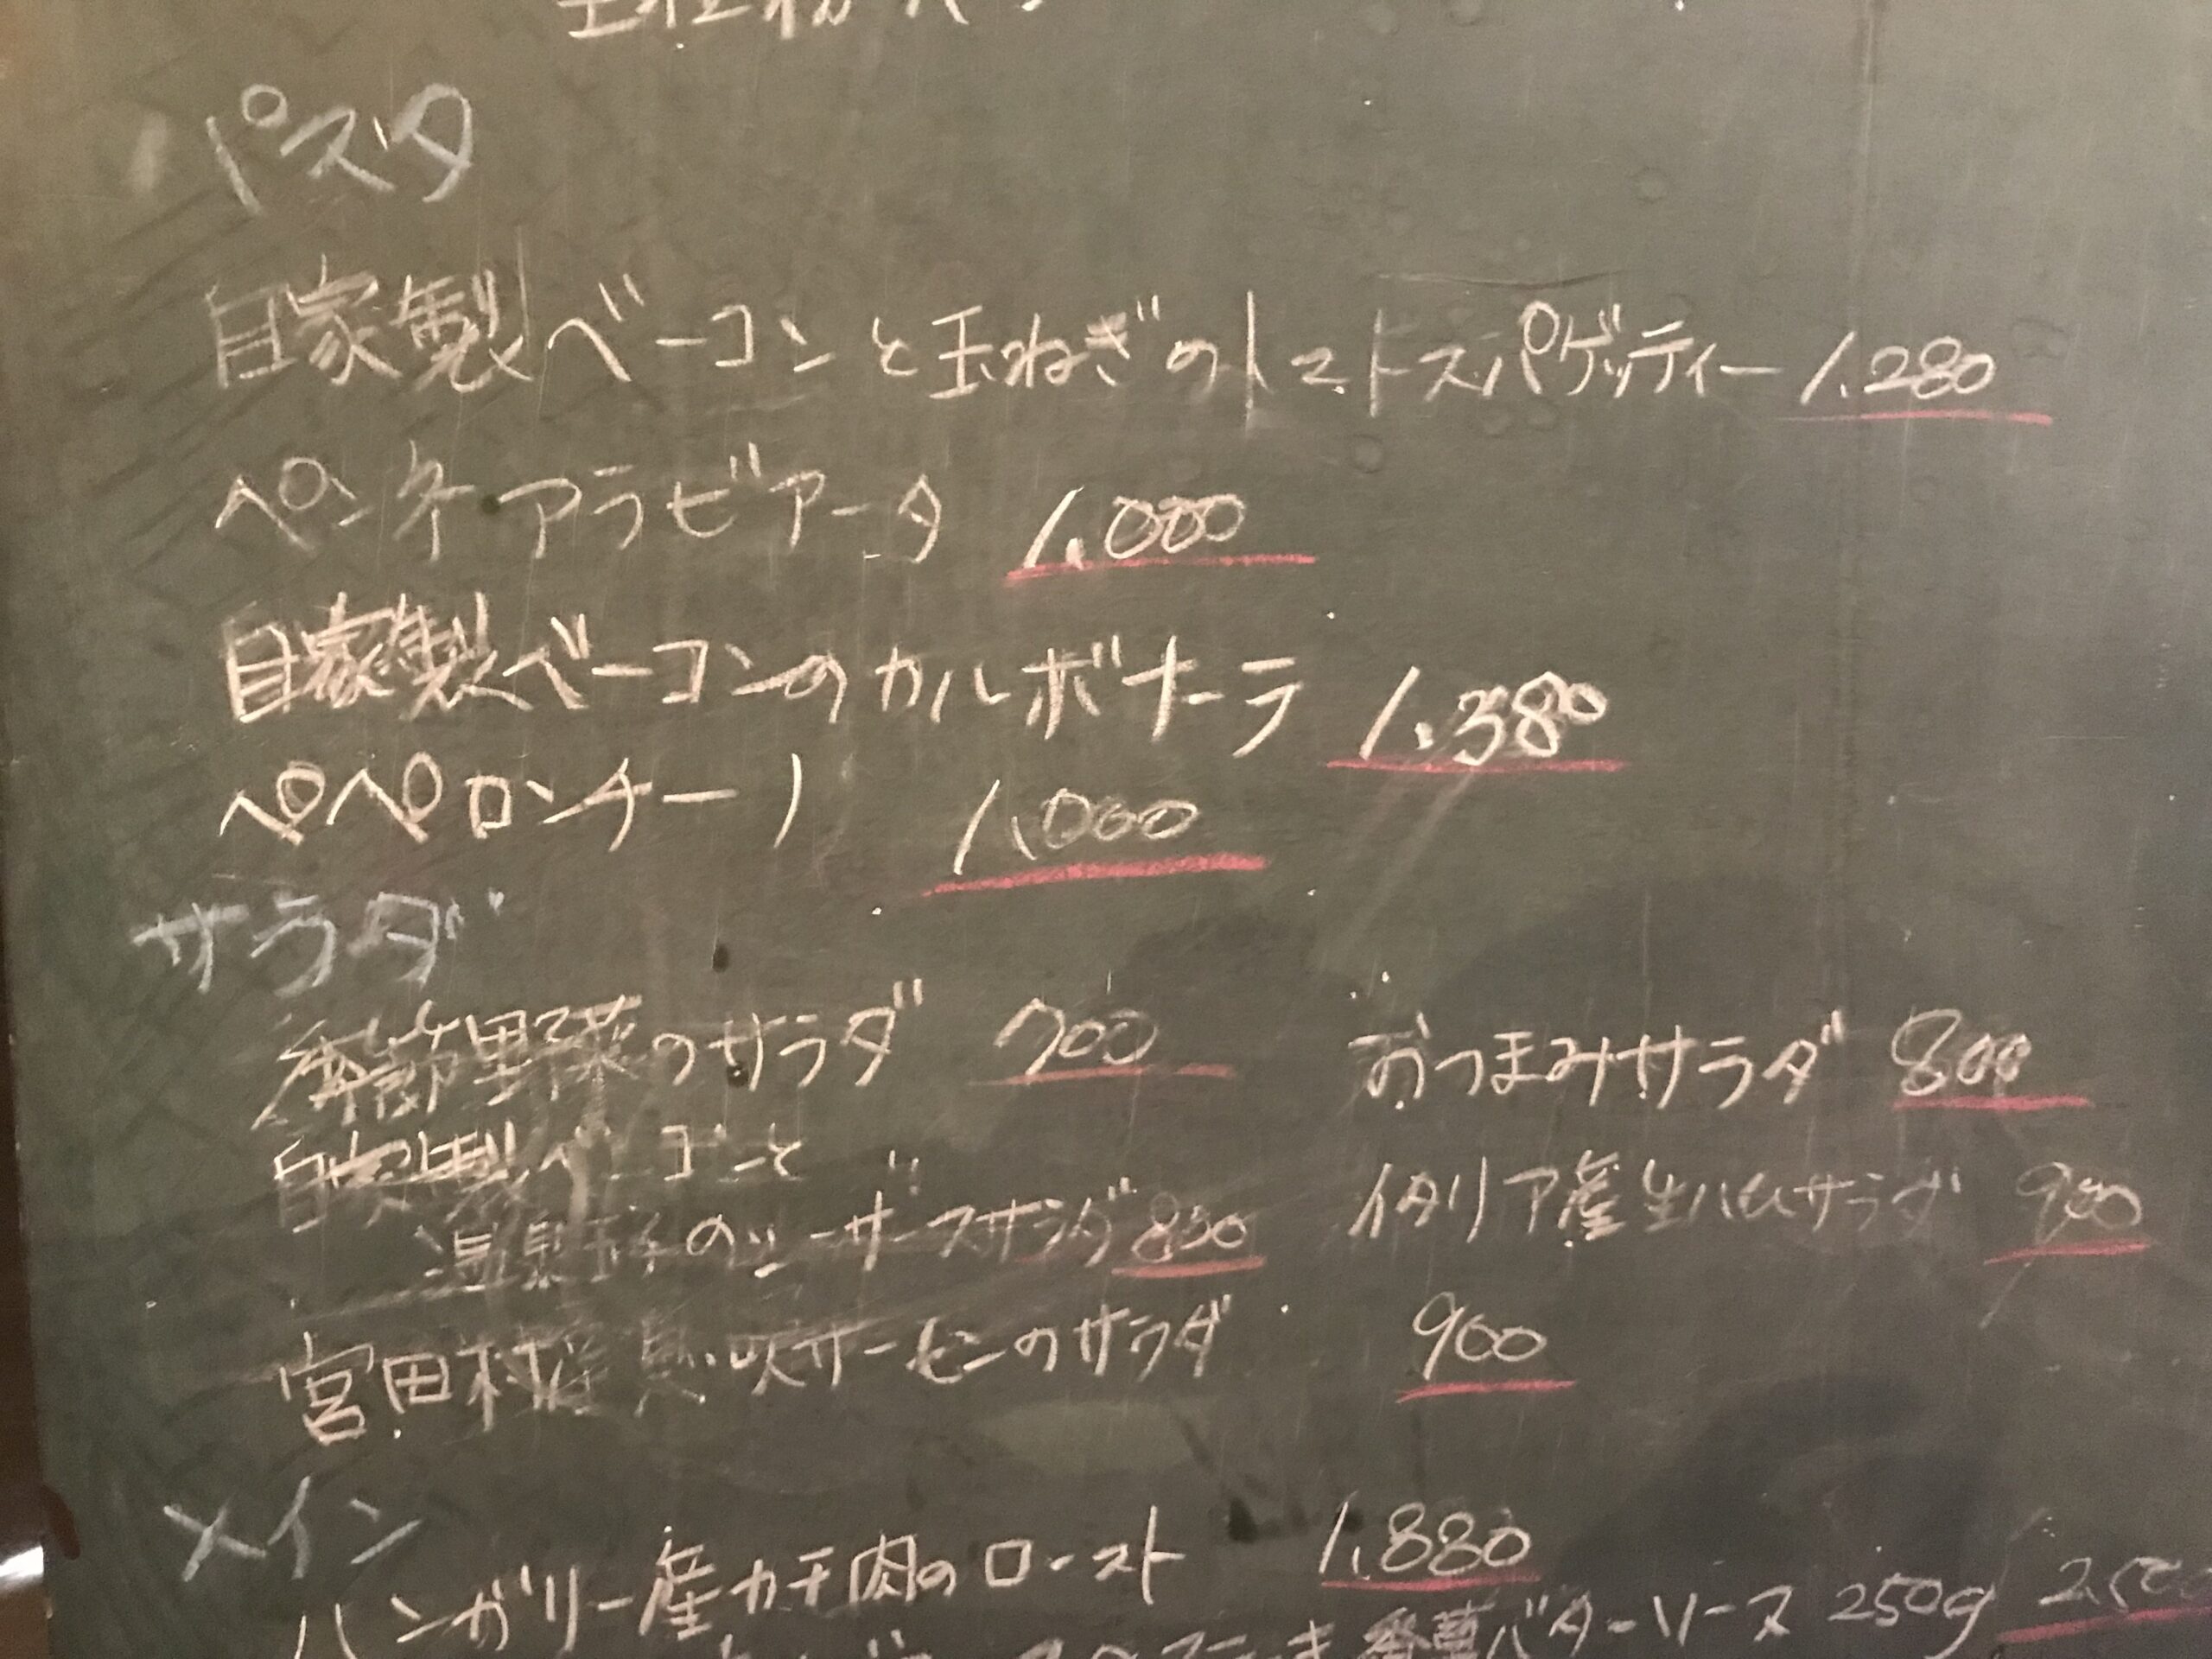 パスタ
自家製ベーコンと玉ねぎのトマトスパゲッティー 1.280
ペンネ アラビアータ 1,000
自家製ベーコンのカルボナーラ 1.380
ペペロンチーノ 1,000
サラダ
季節野菜のサラダ 700
おつまみサラダ 800
自家製ベーコンと
温泉玉子のシーザーサラダ 850
イタリア産生ハムサラダ 900
宮田村産 息吹サーモンのサラダ 900
メイン
ハンガリー産カモ肉のロースト 1,880
バターソース 250g 2,500